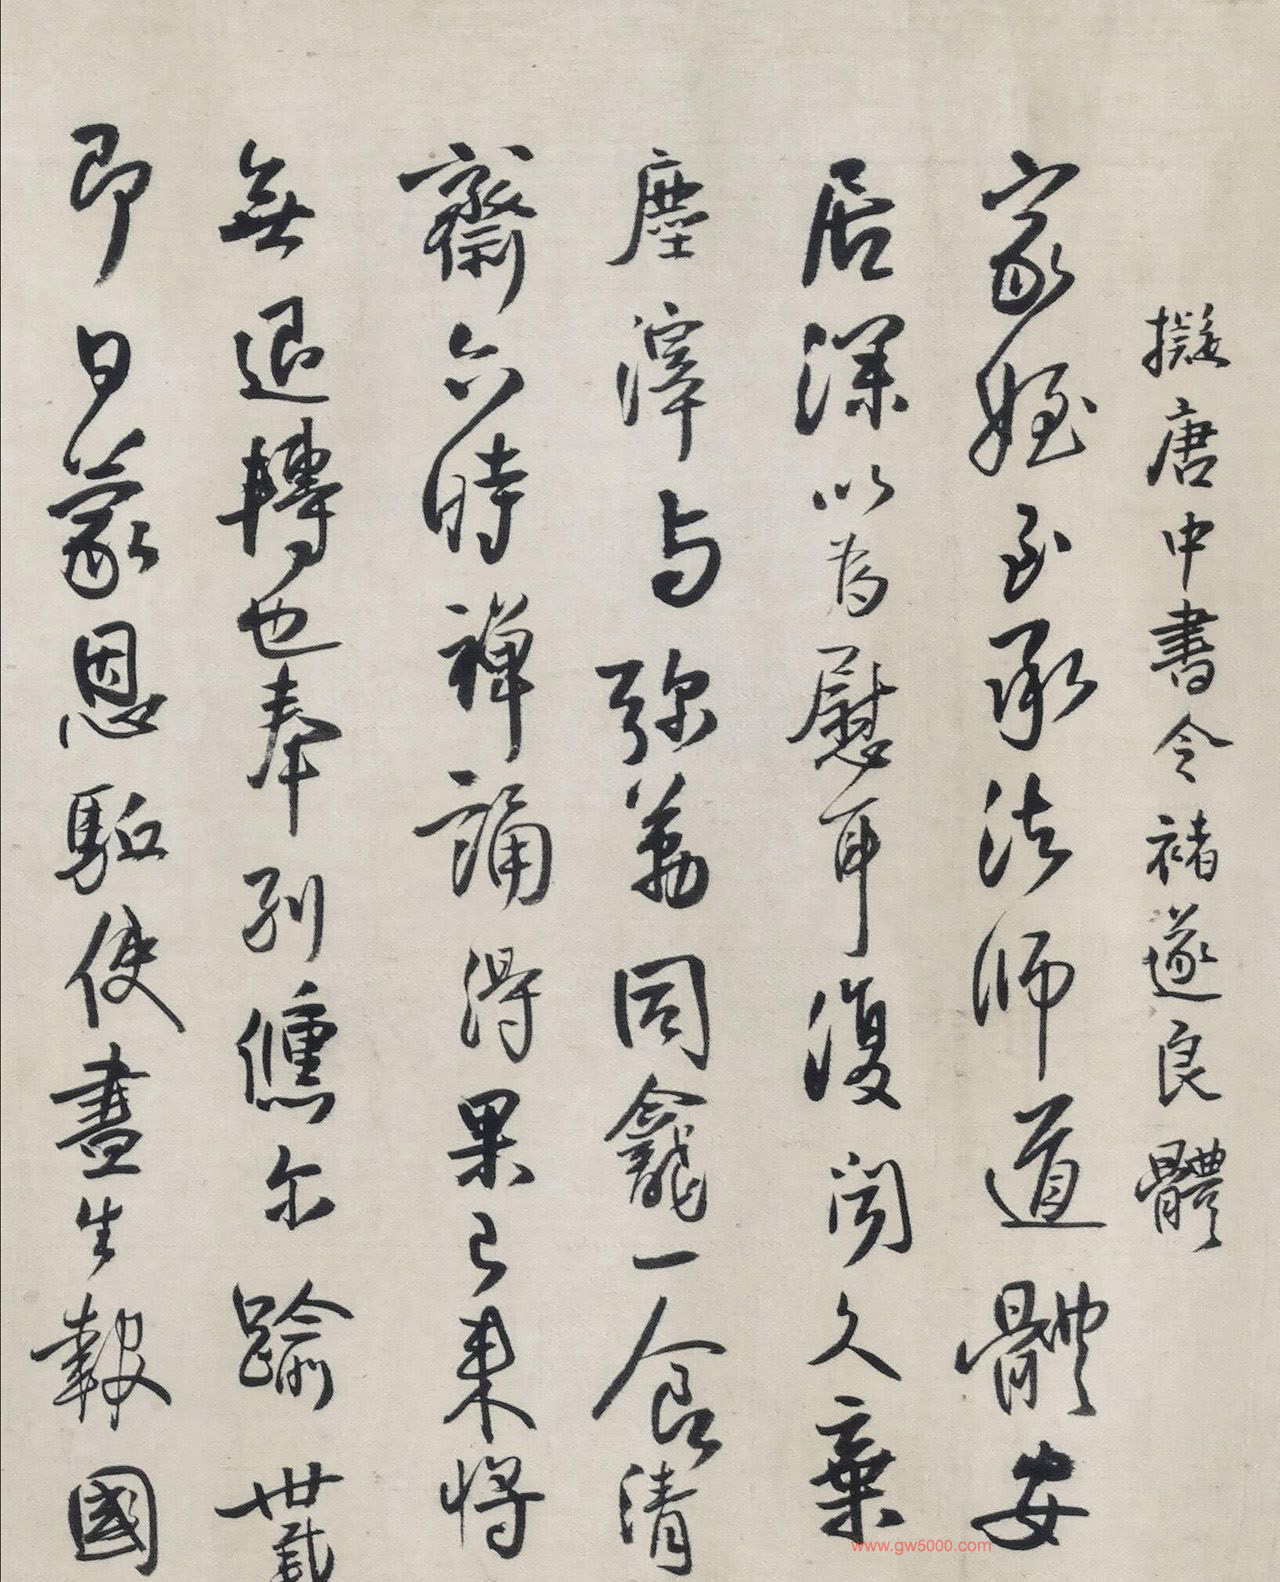 擬唐中書令褚遂良體
家姪至承法师道體安
居深以為慰耳復闻久棄
塵滓与弥勒同龕一食清
齋六時禅誦得果已来将
無退轉也奉别儵尔踰卌載
即日蒙恩駈使盡生報國
www.gw5000.com